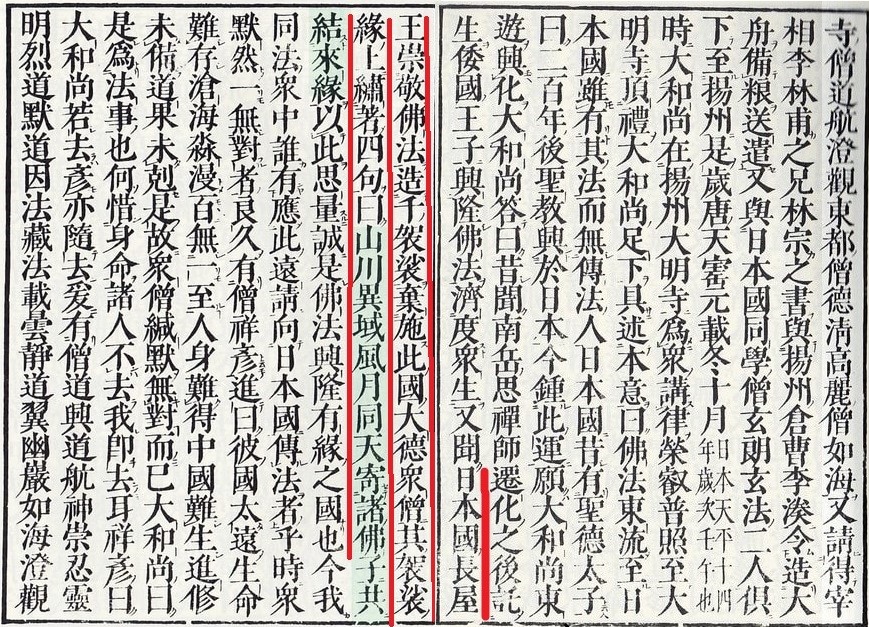 寺僧道航澄觀東都僧德淸高麗僧如海又請得宰
相李林甫之兄林宗之書與揚州倉曹李湊令造大
舟備粮送遣又與日本國同學僧玄朗玄法二人俱
下至揚州是歲唐天寳元載冬十月日本天平十四年歲次壬午也
時大和尚在揚州大明寺爲衆講律榮叡普照至大
明寺頂禮大和尚足下具述本意曰佛法東流至日
本國雖有其法而無傳法人日本國昔有聖德太子
曰二百年後聖教興於日本今鍾此運願大和尚東
遊興化大和尚答曰昔聞南岳思禪師遷化之後託
生倭國王子興隆佛法濟度衆生又聞日本國長屋
王崇敬佛法造千袈裟棄施此國大德衆僧其袈裟
緣上繡著四句曰山川異域風月同天寄諸佛子共
結來緣以此思量誠是佛法興隆有緣之國也今我
同法衆中誰有應此遠請向日本國傳法者乎時衆
默然一無對者良久有僧祥彥進曰彼國太遠生命
難存滄海淼漫百無一至人身難得中國難生進修
未備道果未剋是故衆僧緘默無對而已大和尚曰
是爲法事也何惜身命諸人不去我即去耳祥彥曰
大和尚若去彥亦隨去爰有僧道興道航神崇忍靈
明烈道默道因法藏法載曇靜道翼幽嚴如海澄觀